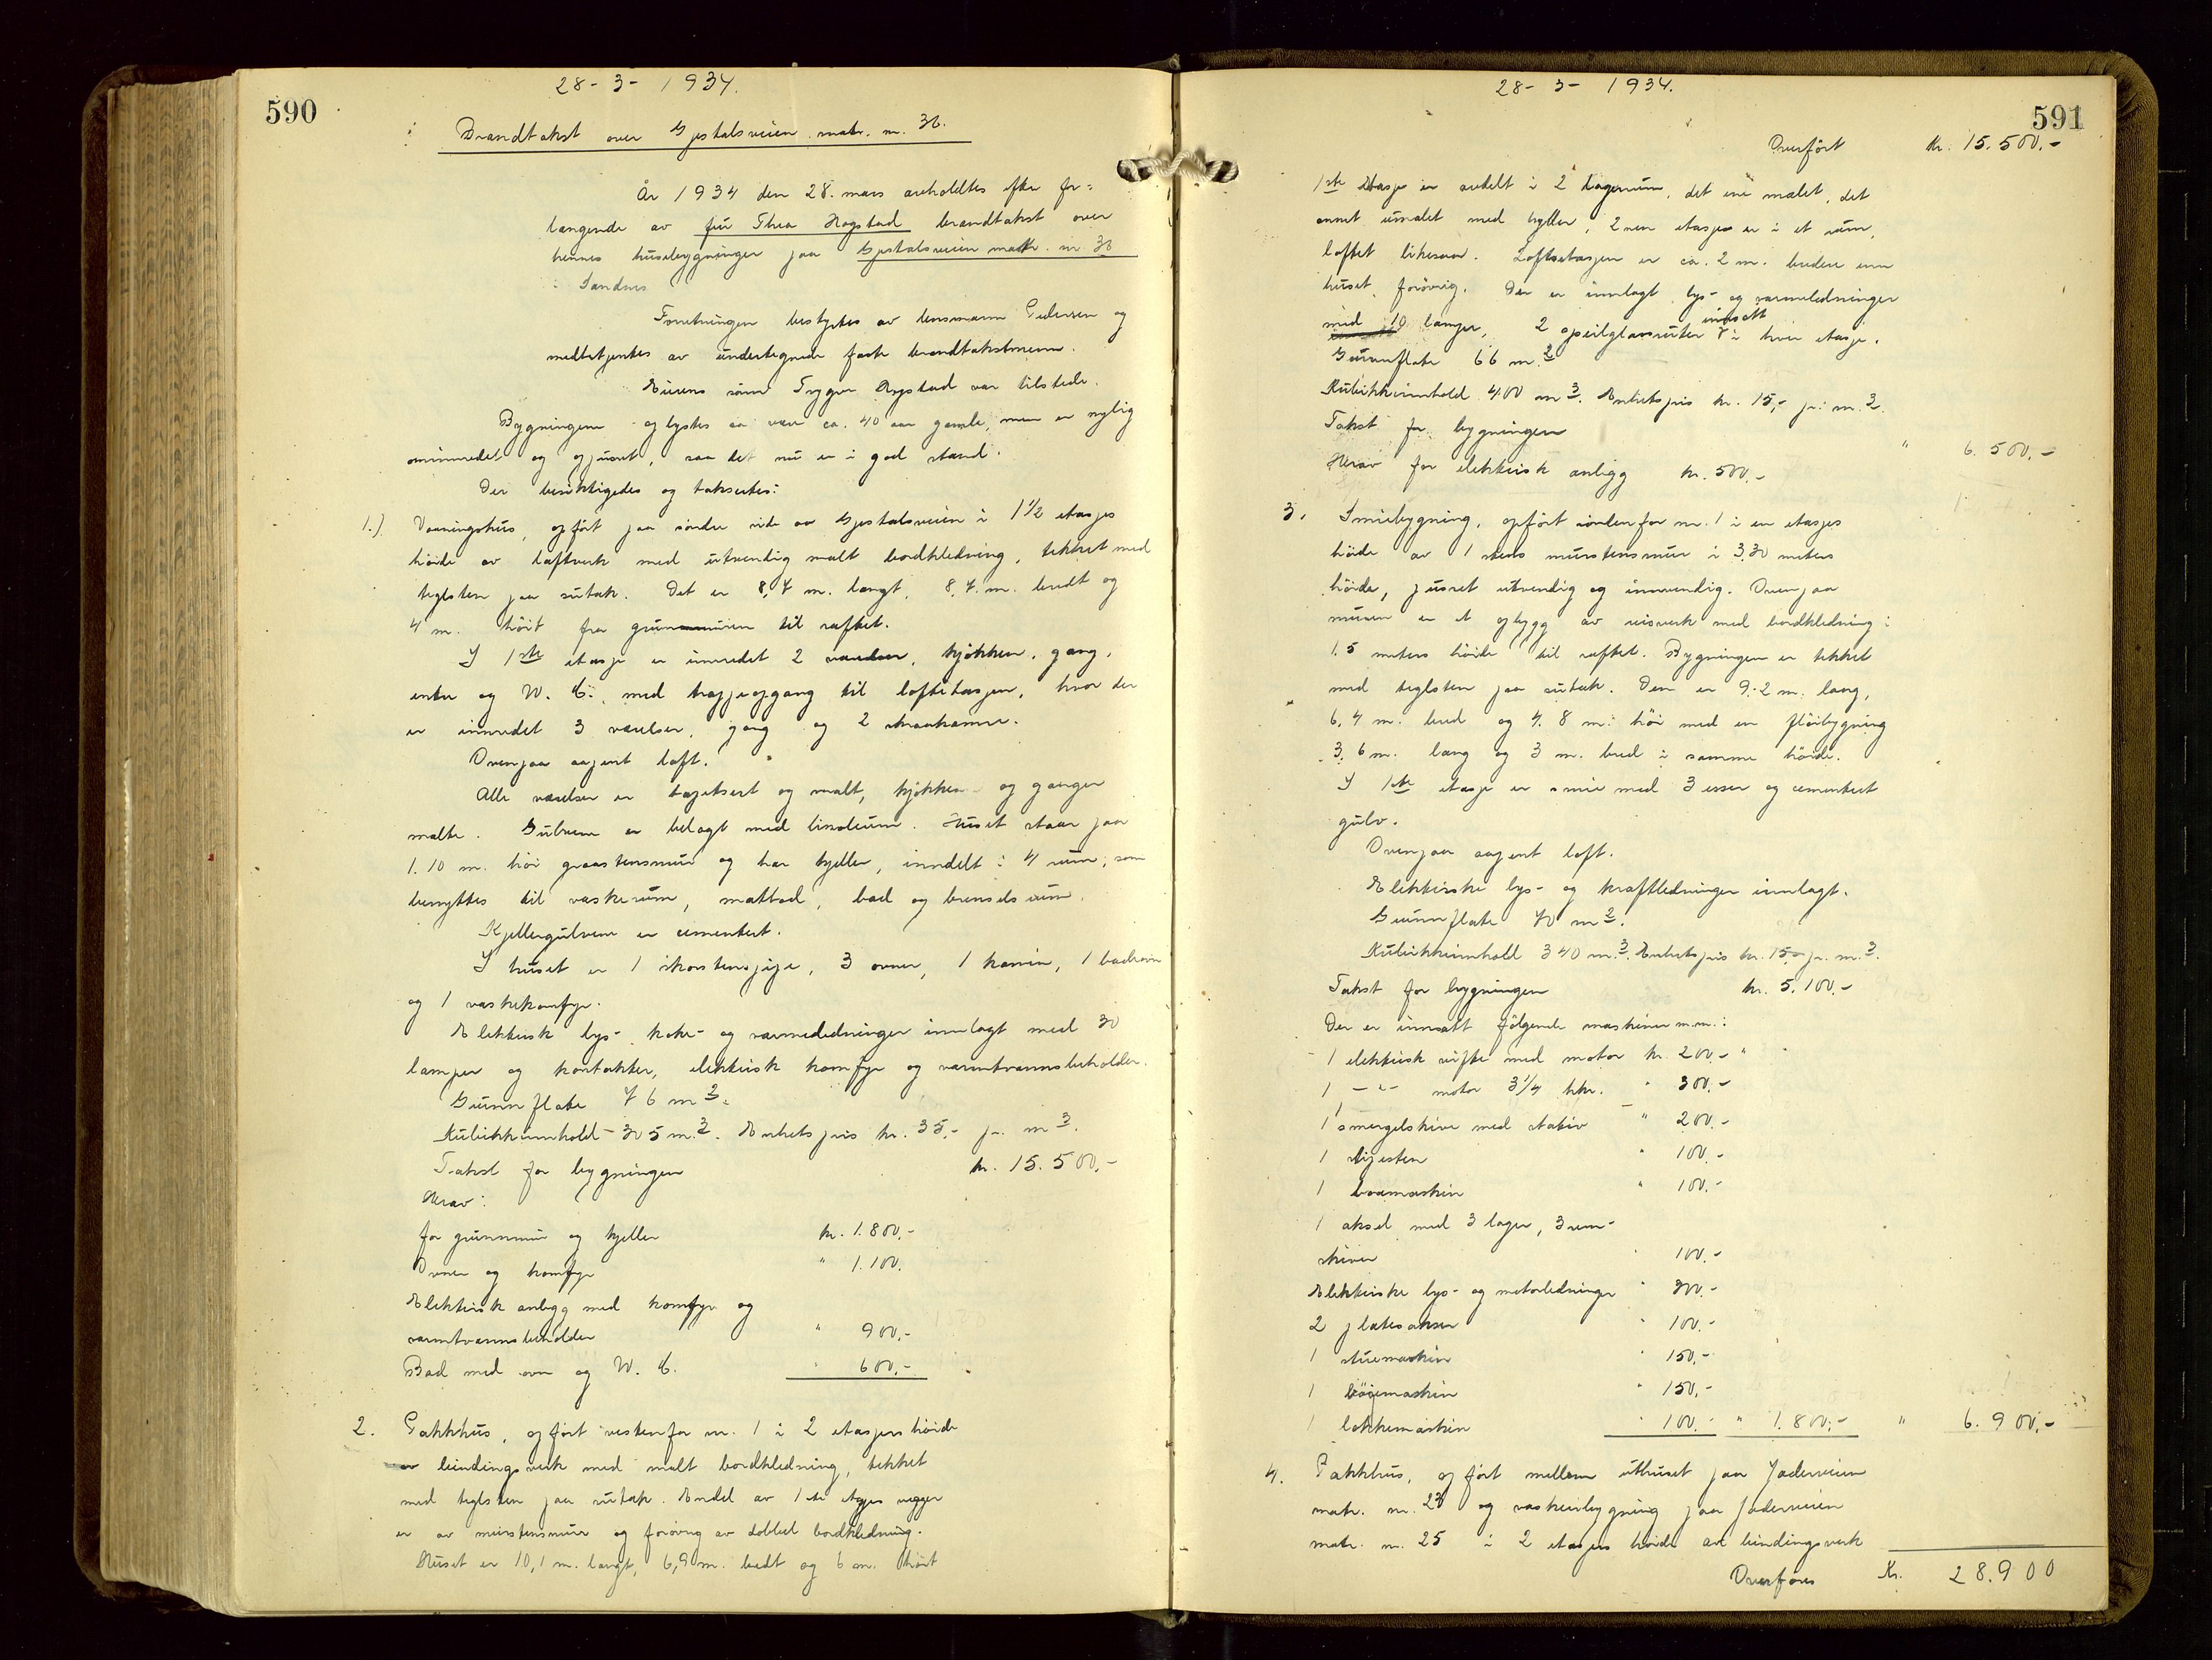 590
28-3-1934.
Brandtakst over Gjestalsveien matr. nr. 36.
År 1934 den 28. mars avholdtes efter for=
langende av fru Thea Hogstad brandtakst over
hennes husebygninger paa Gjestalsveien matr. nr. 36
i Sandnes
Forretningen bestyrtes av lensmann Pedersen og
medbetjentes av undertegnede faste brandtakstmenn.
Eierens sønn Trygve Hogstad var tilstede.
Bygningene oplystes aa være ca. 40 aar gamle, men er nylig
ominnredet og opusset, saa det nu er i god stand.
Der besiktigedes og takseertes:
1.) Vaaningshus, opført paa søndre side av Gjestalsveien i 1 1/2 etasjes
høide av laftverk med utvendig malt bordkledning, tekket med
teglsten paa sutak. Det er 8,7 m. langt, 8,7. m. bredt og
4 m. høit fra grunnmuren til raftet.
I 1ste etasje er innredet 2 værelser, kjøkken, gang,
entre og W. C. med trappeopgang til loftetasjen, hvor der
er innredet 3 værelser, gang og 2 skraakammer.
Ovenpaa aapent loft.
Alle værelser er tapetsert og malt, kjøkken og ganger
malte. Gulvene er belagt med linoleum. Huset staar paa
1.10 m. høi graastensmur og har kjeller, inndelt i 4 rum, som
benyttes til vaskerum, matbod, bad og brenselsrum.
Kjellergulvene er cementert.
I huset er 1 skorstenspipe, 3 ovner, 1 kamin, 1 badeovn
og 1 vaskekomfyr.
Elektrisk lys-, koke- og varmeledninger innlagt med 30
lamper og kontakter, elektrisk komfyr og varmtvannsbeholder.
Grunnflate 76 m2.
Kubikkinnhold 305 m.3. Enhetspris kr. 35,- pr. m3.
Takst for bygningen kr. 15.500,-
Herav:
for grunnmur og kjeller kr. 1.800,-
Ovner og komfyr " 1.100.
Elektrisk anlegg med komfyr og
varmtvannsbeholder " 900,-
Bad med ovn og W. C. " 600,-
2. Pakkhus, opført vestenfor nr. 1 i 2 etasjers høide
av bindingsverk med malt bordkledning, tekket
med teglsten paa sutak. Endel av 1ste etasjes vegger
er av murstensmur og forøvrig av dobbel bordkledning.
Huset er 10,1 m. langt, 6,9 m. bredt og 6 m. høit
591
28-3-1934.
Overført Kr. 15.500,-
1ste etasje er avdelt i 2 lagerrum, det ene malet, det
annet umalet med hyller, 2nen etasje er i et rum,
loftet likesaa. Loftsetasjen er ca. 2 m. bredere enn
huset forøvrig. Der er innlagt lys- og varmeledninger
med 10 lamper, 2 speilglassruter innsatt i hver etasje.
Grunnflate 66 m.2
Kubikkinnhold 400 m3. Enhetspris kr. 15,- pr. m.3.
Takst for bygningen " 6.500,-
Herav for elektrisk anlegg kr. 500,-
3. Smiebygning, opført sønlenfor nr. 1 i en etasjes
høide av 1 stens murstensmur i 3,30 meters
høide, pusset utvendig og innvendig. Ovenpaa
muren er et opbygg av reisverk med bordkledning i
1.5 meters høide til raftet. Bygningen er tekket
med teglsten paa sutak. Den er 9.2 m. lang,
6,4 m. bred og 4.8 m. høi med en fløibygning
3,6 m. lang og 3 m. bred i samme høide.
I 1ste etasje er smie med 3 esser og cementert
gulv.
Ovenpaa aapent loft.
Elektriske lys- og kraftledninger innlagt.
Grunnflate 70 m2.
Kubikkinnhold 340 m.3. Enhetspris kr. 15,- pr. m.3.
Takst for bygningen kr. 5.100.-
Der er innsatt følgende maskiner m.m.:
1 elektrisk vifte med motor kr. 200,-
1 -"- motor 3 1/4 hkr. " 300,-
1 smergelskive med stativ " 200,-
1 slipesten " 100,-
1 boremaskin " 100,-
1 aksel med 3 lager, 3 rem-
skiver " 100,-
Elektriske lys- og motorledninger " 300,-
2 platesakser " 100,-
1 stuemaskin " 150,-
1 bøiemaskin " 150,-
1 lokkemaskin " 100,- " 1.800,- " 6.900,-
4. Pakkhus, opført mellem uthuset paa Jadarveien
matr. nr. 23 og vaskeribygning paa Jadarveien
matr. nr. 25 i 2 etasjes høide av bindingsverk
Overføres Kr. 28.900